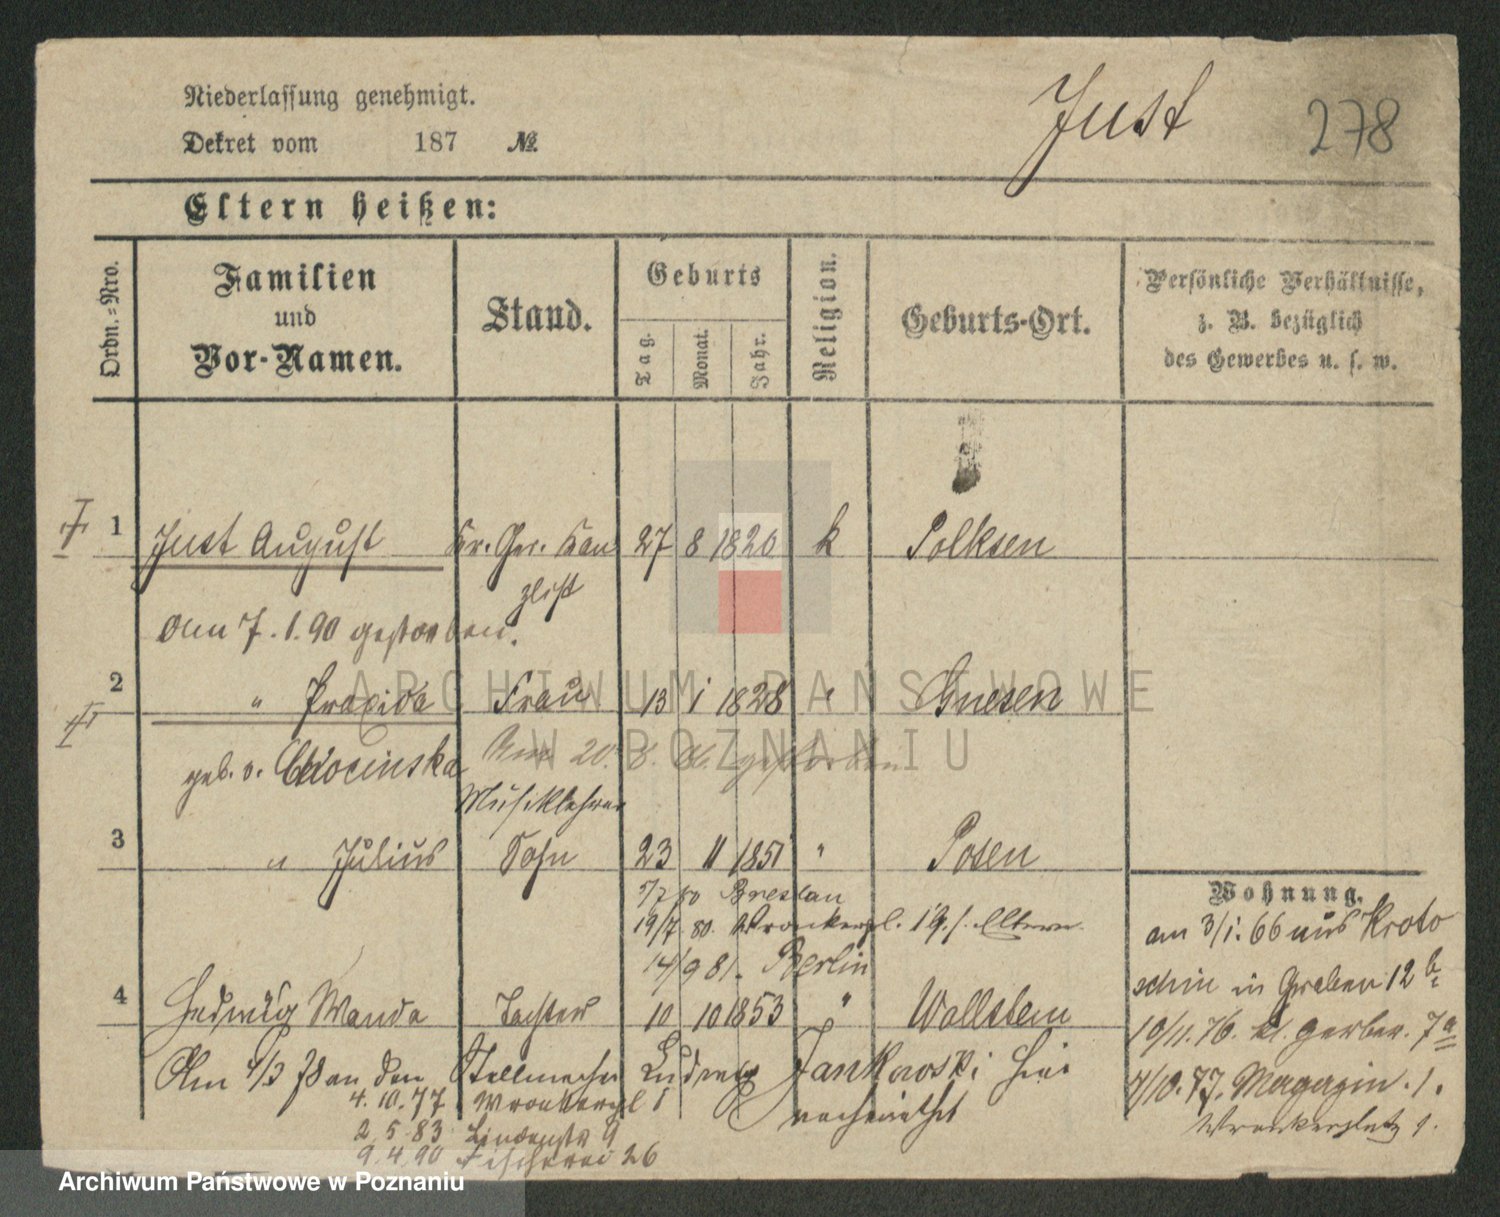 Niederlassung genehmigt.
Just
278
Dekret vom 187 №
Eltern heißen:
Ordn.-Nro.
Familien und Vor-Namen.
Stand.
Geburts
Tag.
Monat.
Jahr.
Religion.
Geburts-Ort.
Persönliche Verhältnisse, z. B. bezüglich des Gewerbes u. s. w.
I
1 Just August Kr. Ger. Kan 27 8 1820 k Polksen
zlist
Am 7.1.90 gestorben.
2 " Praxida Frau 13 1 1828 " Gnesen
II
geb. v. Am 20. 8. gestorben
Musiklehrer
3 " Julius Sohn 23 11 1851 " Posen
Wohnung.
5/7 80 Breslau
am 3/1. 66 aus Kroto
19/7. 80. Wronkerpl. 19. s. Eltern.
14/9 81. Berlin
schin in Graben 12 b.
4 Hedwig Wanda Tochter 10 10 1853 " Wollstein
10/11. 76. kl. Gerber. 7a
Am 4/3 78 an den Stellmacher Ludwig Jankowski hier
verheirathet
4/10. 77. Magazin. 1.
4. 10. 77 Wronkerpl 1
Wronkerplatz 1.
2. 5. 83 Lindenstr 9
9. 4. 90 Fischerei 26
ARCHIWUM PAŃSTWOWE
W POZNANIU
Archiwum Państwowe w Poznaniu